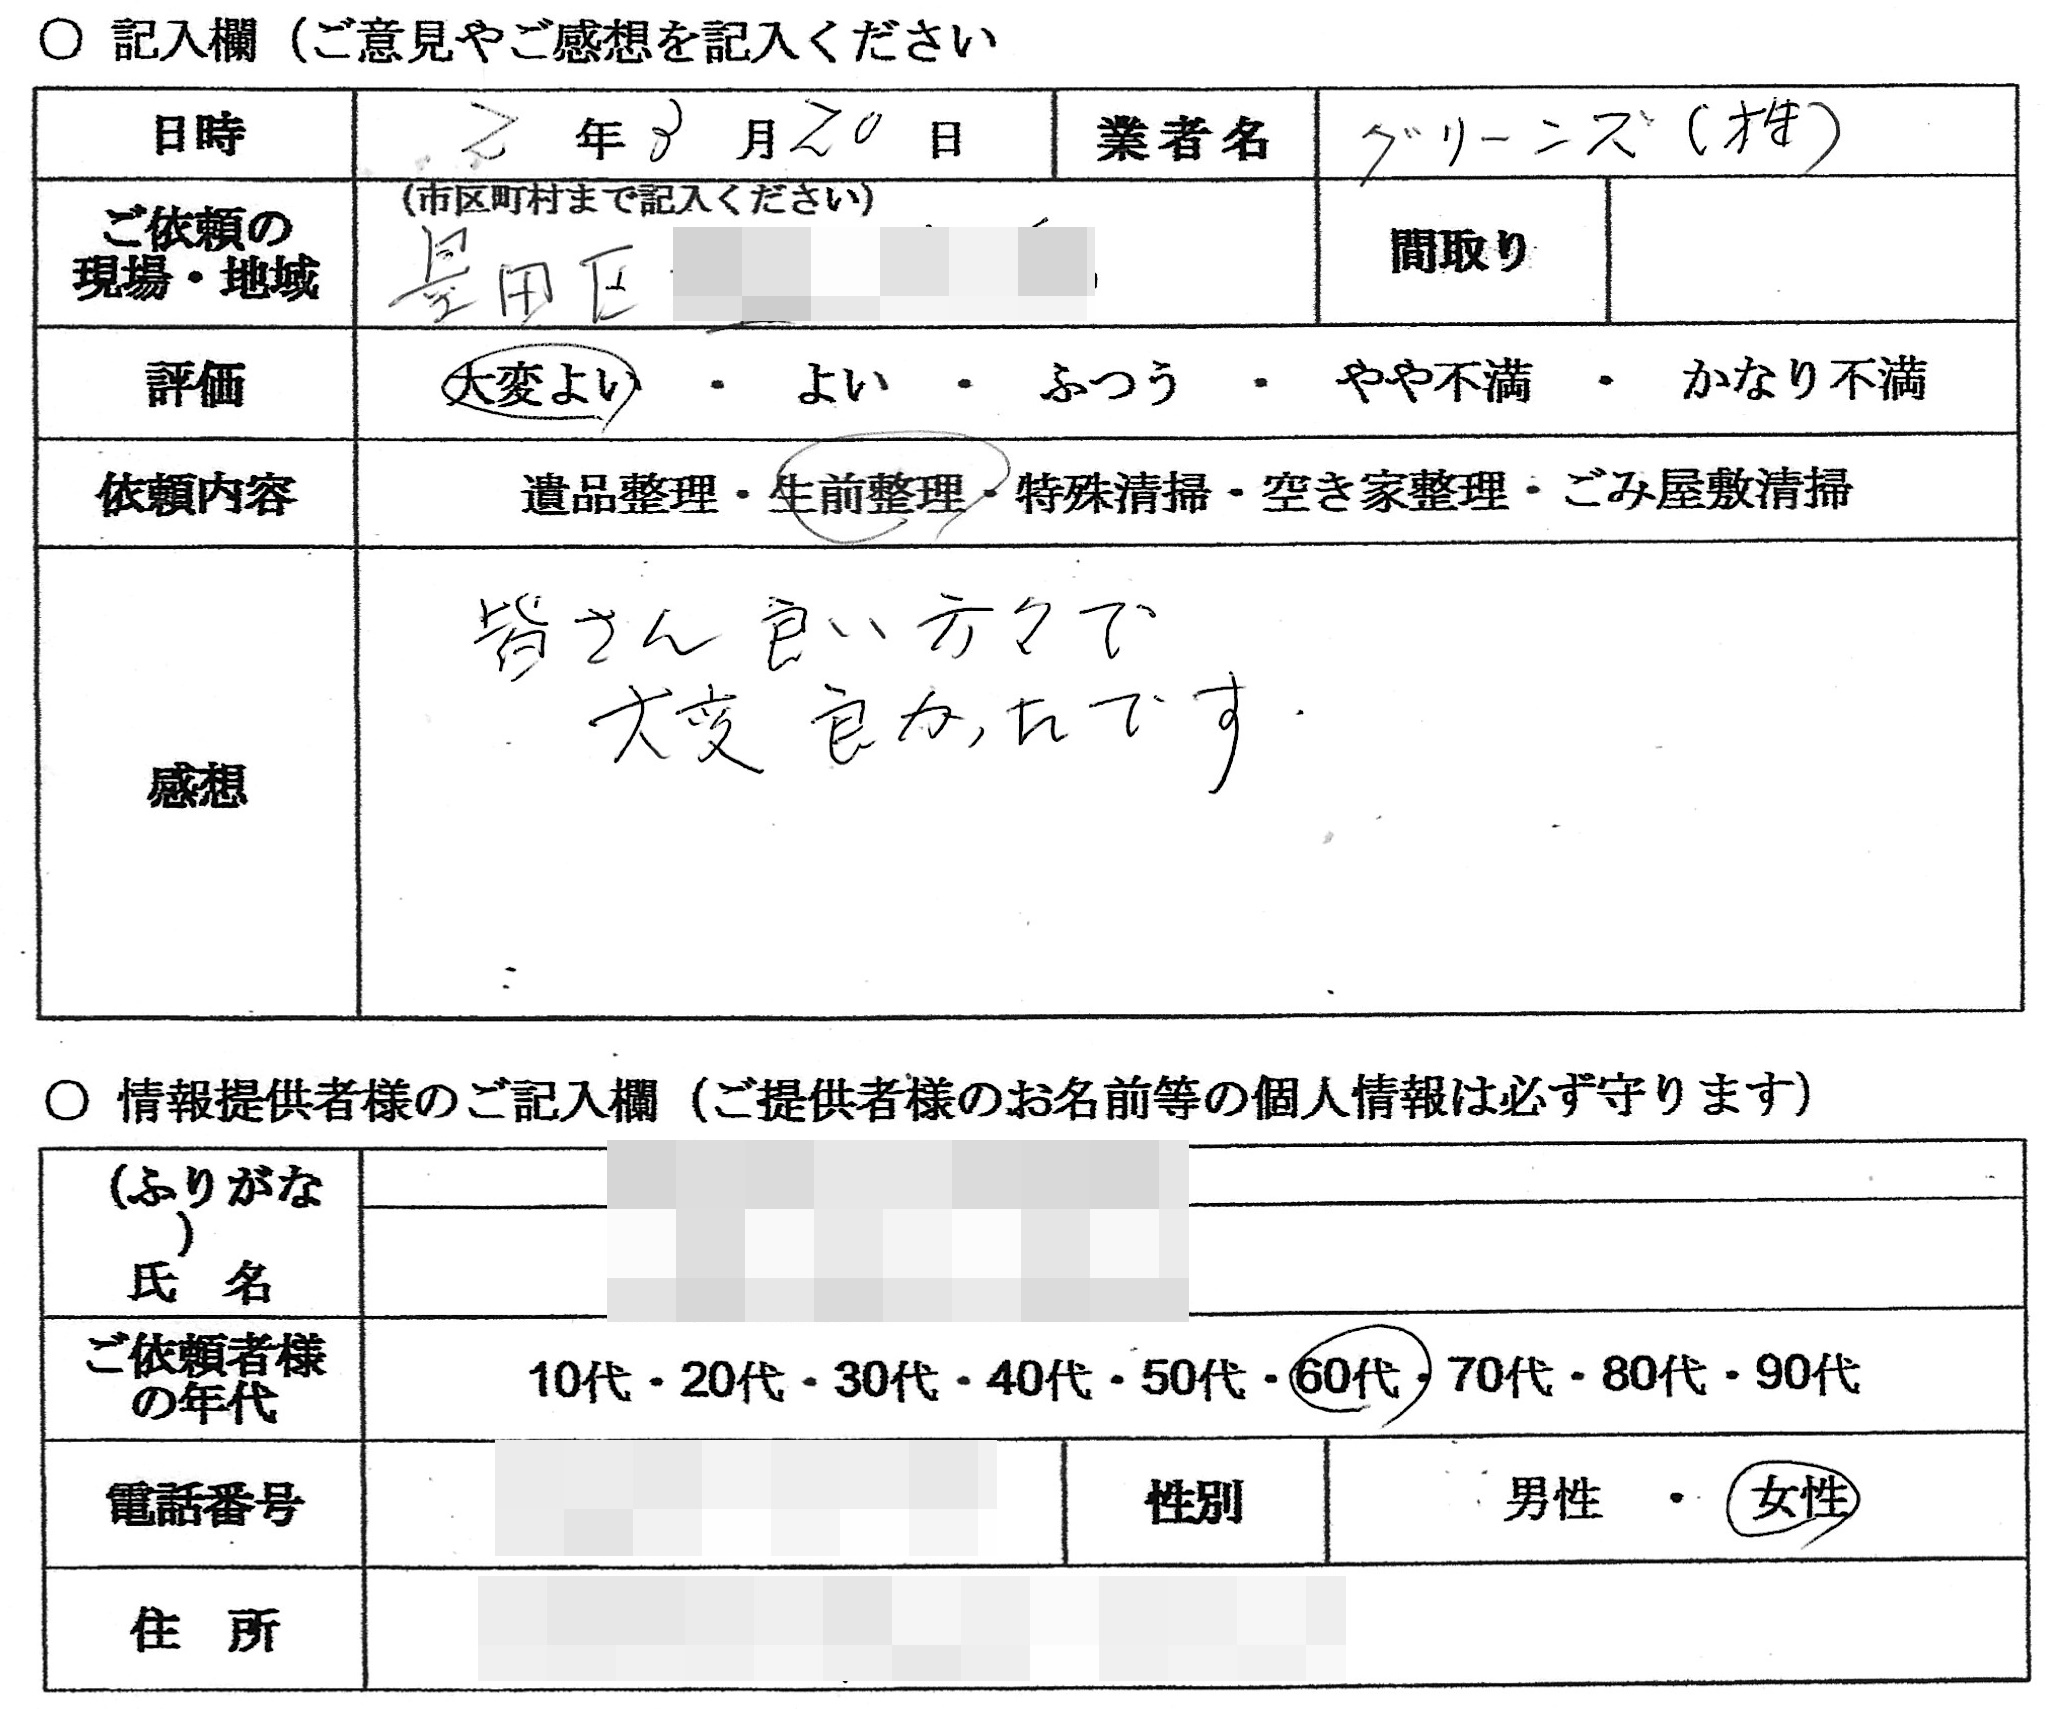 ○ 記入欄（ご意見やご感想を記入ください
日時 2 年 8 月 20 日 業者名 グリーンズ(株)
ご依頼の
現場・地域 (市区町村まで記入ください) 間取り
墨田区
評価 大変よい ・ よい ・ ふつう ・ やや不満 ・ かなり不満
依頼内容 遺品整理・生前整理・特殊清掃・空き家整理・ごみ屋敷清掃
感想
皆さん 良い方々で
大変 良かったです.
○ 情報提供者様のご記入欄（ご提供者様のお名前等の個人情報は必ず守ります）
(ふりがな
)
氏 名
ご依頼者様
の年代 10代・20代・30代・40代・50代・60代・70代・80代・90代
電話番号 性別 男性 ・ 女性
住 所